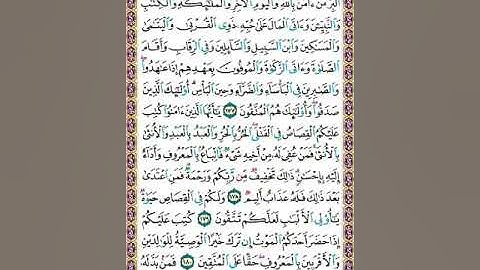 ٱلۡبِرَّ مَنۡ ءَامَنَ بِٱللَّهِ وَٱلۡيَوۡمِ ٱلۡأٓخِرِ وَٱلۡمَلَٰٓئِكَةِ وَٱلۡكِتَٰبِ
وَٱلنَّبِيِّـۧنَ وَءَاتَى ٱلۡمَالَ عَلَىٰ حُبِّهِۦ ذَوِي ٱلۡقُرۡبَىٰ وَٱلۡيَتَٰمَىٰ
وَٱلۡمَسَٰكِينَ وَٱبۡنَ ٱلسَّبِيلِ وَٱلسَّآئِلِينَ وَفِي ٱلرِّقَابِ وَأَقَامَ
ٱلصَّلَوٰةَ وَءَاتَى ٱلزَّكَوٰةَ وَٱلۡمُوفُونَ بِعَهۡدِهِمۡ إِذَا عَٰهَدُواْۖ
وَٱلصَّٰبِرِينَ فِي ٱلۡبَأۡسَآءِ وَٱلضَّرَّآءِ وَحِينَ ٱلۡبَأۡسِۗ أُوْلَٰٓئِكَ ٱلَّذِينَ
صَدَقُواْۖ وَأُوْلَٰٓئِكَ هُمُ ٱلۡمُتَّقُونَ ١٧٧ يَٰٓأَيُّهَا ٱلَّذِينَ ءَامَنُواْ كُتِبَ
عَلَيۡكُمُ ٱلۡقِصَاصُ فِي ٱلۡقَتۡلَىۖ ٱلۡحُرُّ بِٱلۡحُرِّ وَٱلۡعَبۡدُ بِٱلۡعَبۡدِ وَٱلۡأُنثَىٰ
بِٱلۡأُنثَىٰۚ فَمَنۡ عُفِيَ لَهُۥ مِنۡ أَخِيهِ شَيۡءٞ فَٱتِّبَاعُۢ بِٱلۡمَعۡرُوفِ وَأَدَآءٌ
إِلَيۡهِ بِإِحۡسَٰنٖۗ ذَٰلِكَ تَخۡفِيفٞ مِّن رَّبِّكُمۡ وَرَحۡمَةٞۗ فَمَنِ ٱعۡتَدَىٰ
بَعۡدَ ذَٰلِكَ فَلَهُۥ عَذَابٌ أَلِيمٞ ١٧٨ وَلَكُمۡ فِي ٱلۡقِصَاصِ حَيَوٰةٞ
يَٰٓأُوْلِي ٱلۡأَلۡبَٰبِ لَعَلَّكُمۡ تَتَّقُونَ ١٧٩ كُتِبَ عَلَيۡكُمۡ
إِذَا حَضَرَ أَحَدَكُمُ ٱلۡمَوۡتُ إِن تَرَكَ خَيۡرًا ٱلۡوَصِيَّةُ لِلۡوَٰلِدَيۡنِ
وَٱلۡأَقۡرَبِينَ بِٱلۡمَعۡرُوفِۖ حَقًّا عَلَى ٱلۡمُتَّقِينَ ١٨٠ فَمَنۢ بَدَّلَهُۥ